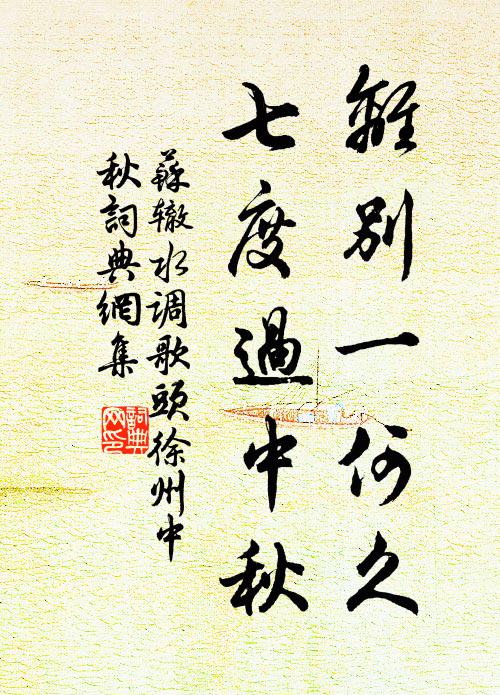 離別一何久
七度過中秋
蘇辙水调歌頭徐州中
秋詞典網集
詞典
网印